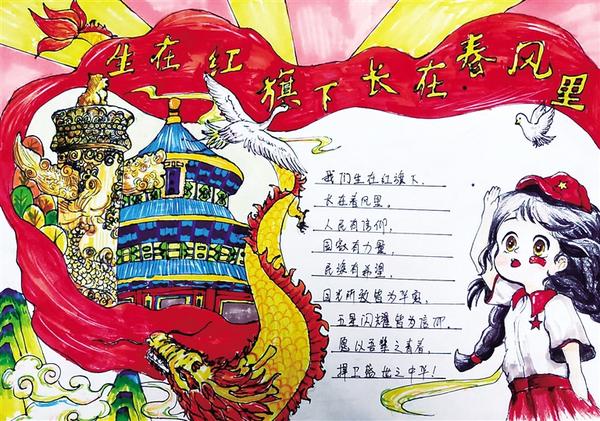 生在红旗下长在春风里
我们生在红旗下，
长在春风里，
人民有信仰，
国家有力量，
民族有希望，
目光所致皆为华夏，
五星闪耀皆为信仰，
愿以吾辈之青春，
捍卫盛世之中华！